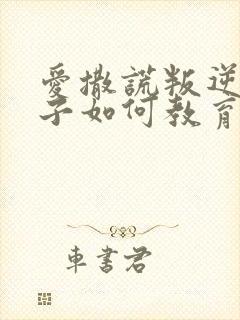 愛撒謊叛逆
子如何教育
車書君